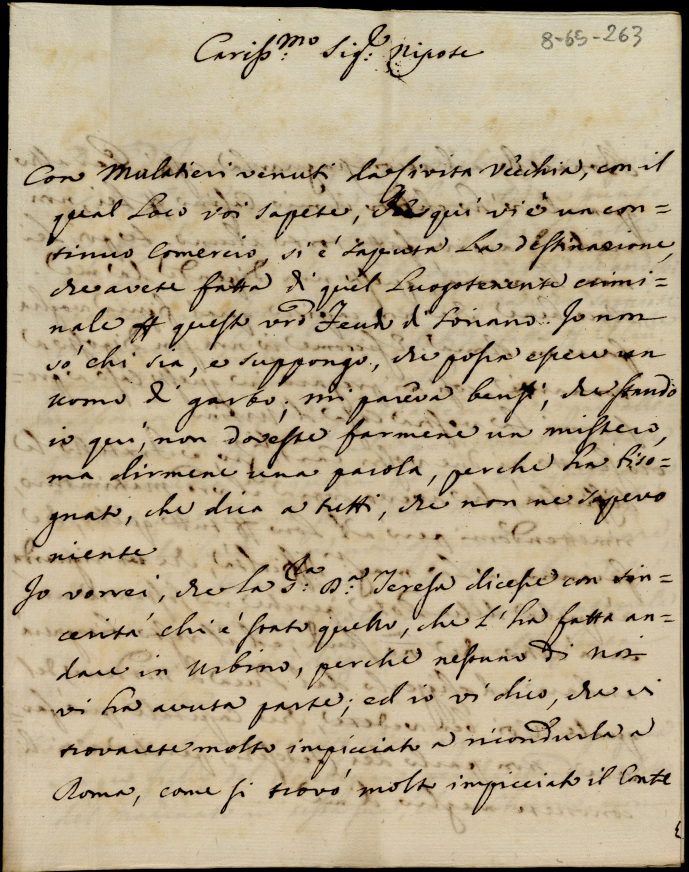 8-65-263
Cariss.mo Sig.e Nipote
Con Mulatieri venuti da Civita Vecchia, con il
qual Loco voi sapete, che quì vi è un con=
tinuo Comercio, si è saputa la destinazione,
che avete fatta di quel Luogotenente crimi=
nale quest vro Feudo di Soriano. Io non
sò chi sia, e suppongo, che possa essere un
uomo di garbo; mi pareva bensì, che stando
io quì, non doveste farmene un mistero,
ma dirmene una parola, perche hà biso=
gnato, che dica a tutti, che non ne sapevo
niente
Io vorrei, che la S.ra D.a Teresa dicesse con sin=
cerità chi è stato quello, che l'hà fatta an=
dare in Urbino, perche nessuno di noi
vi hà avuta parte; ed io vi dico, che vi
trovarete molto impicciato a ricondurla a
Roma, come si trovò molto impicciato il Conte